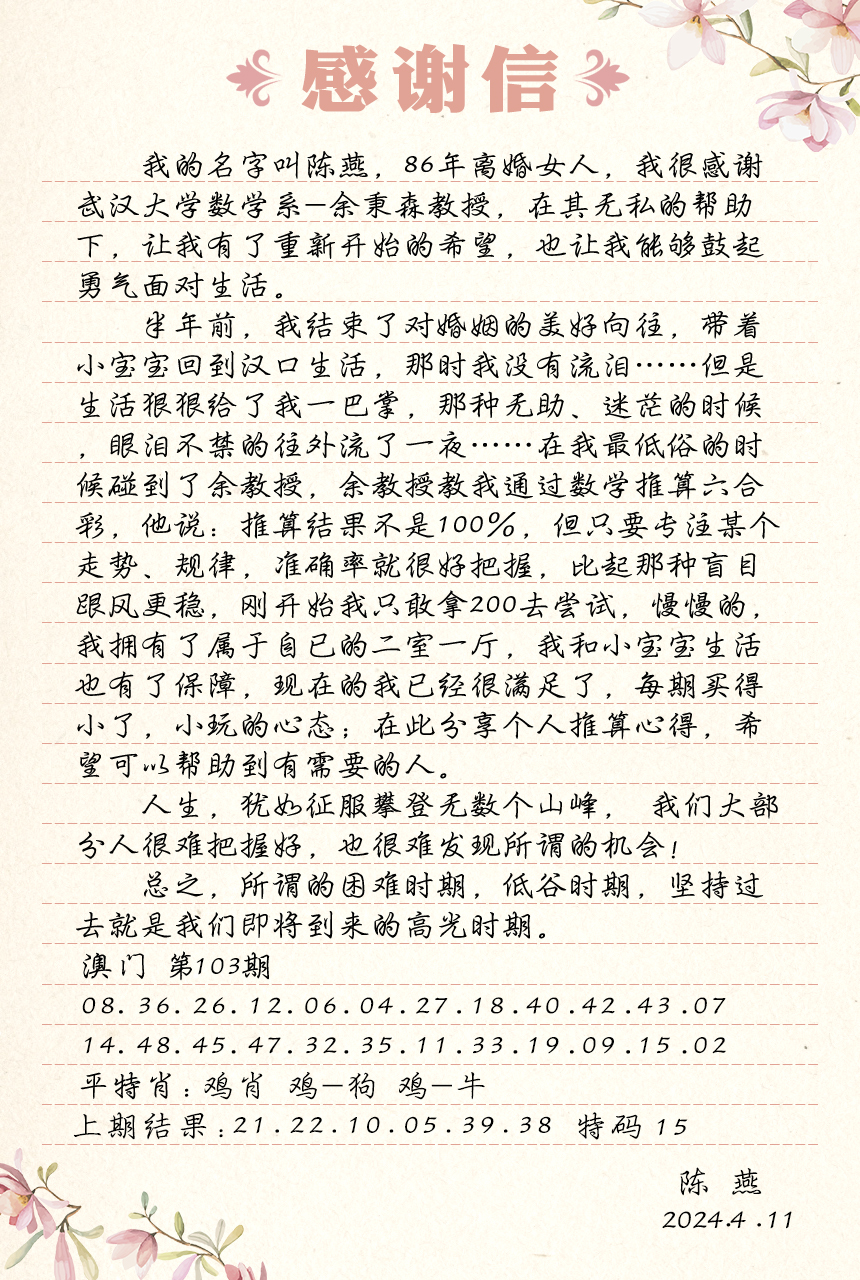 感谢信
我的名字叫陈燕，86年离婚女人，我很感谢
武汉大学数学系—余秉森教授，在其无私的帮助
下，让我有了重新开始的希望，也让我能够鼓起
勇气面对生活。
半年前，我结束了对婚姻的美好向往，带着
小宝宝回到汉口生活，那时我没有流泪……但是
生活狠狠给了我一巴掌，那种无助、迷茫的时候
，眼泪不禁的往外流了一夜……在我最低俗的时
候碰到了余教授，余教授教我通过数学推算六合
彩，他说：推算结果不是100%，但只要专注某个
走势、规律，准确率就很好把握，比起那种盲目
跟风更稳，刚开始我只敢拿200去尝试，慢慢的，
我拥有了属于自已的二室一厅，我和小宝宝生活
也有了保障，现在的我已经很满足了，每期买得
小了，小玩的心态；在此分享个人推算心得，希
望可以帮助到有需要的人。
人生，犹如征服攀登无数个山峰， 我们大部
分人很难把握好，也很难发现所谓的机会！
总之，所谓的困难时期，低谷时期，坚持过
去就是我们即将到来的高光时期。
澳门 第103期
08.36.26.12.06.04.27.18.40.42.43.07
14.48.45.47.32.35.11.33.19.09.15.02
平特肖：鸡肖 鸡—狗 鸡—牛
上期结果：21.22.10.05.39.38 特码 15
陈 燕
2024.4.11